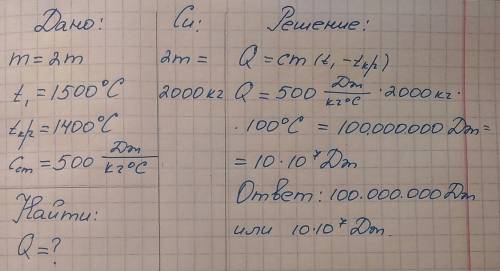 Дано:
m = 2т
t₁ = 1500°C
tкр = 1400°C
Cст = 500 Дж/кг°C
Найти:
Q = ?
Си:
2т =
2000 кг
Решение:
Q = cm (t₁ - tкр)
Q = 500 Дж/кг°C · 2000 кг ·
· 100°C = 100.000.000 Дж =
= 10 · 10⁷ Дж
Ответ: 100.000.000 Дж
или 10·10⁷ Дж.